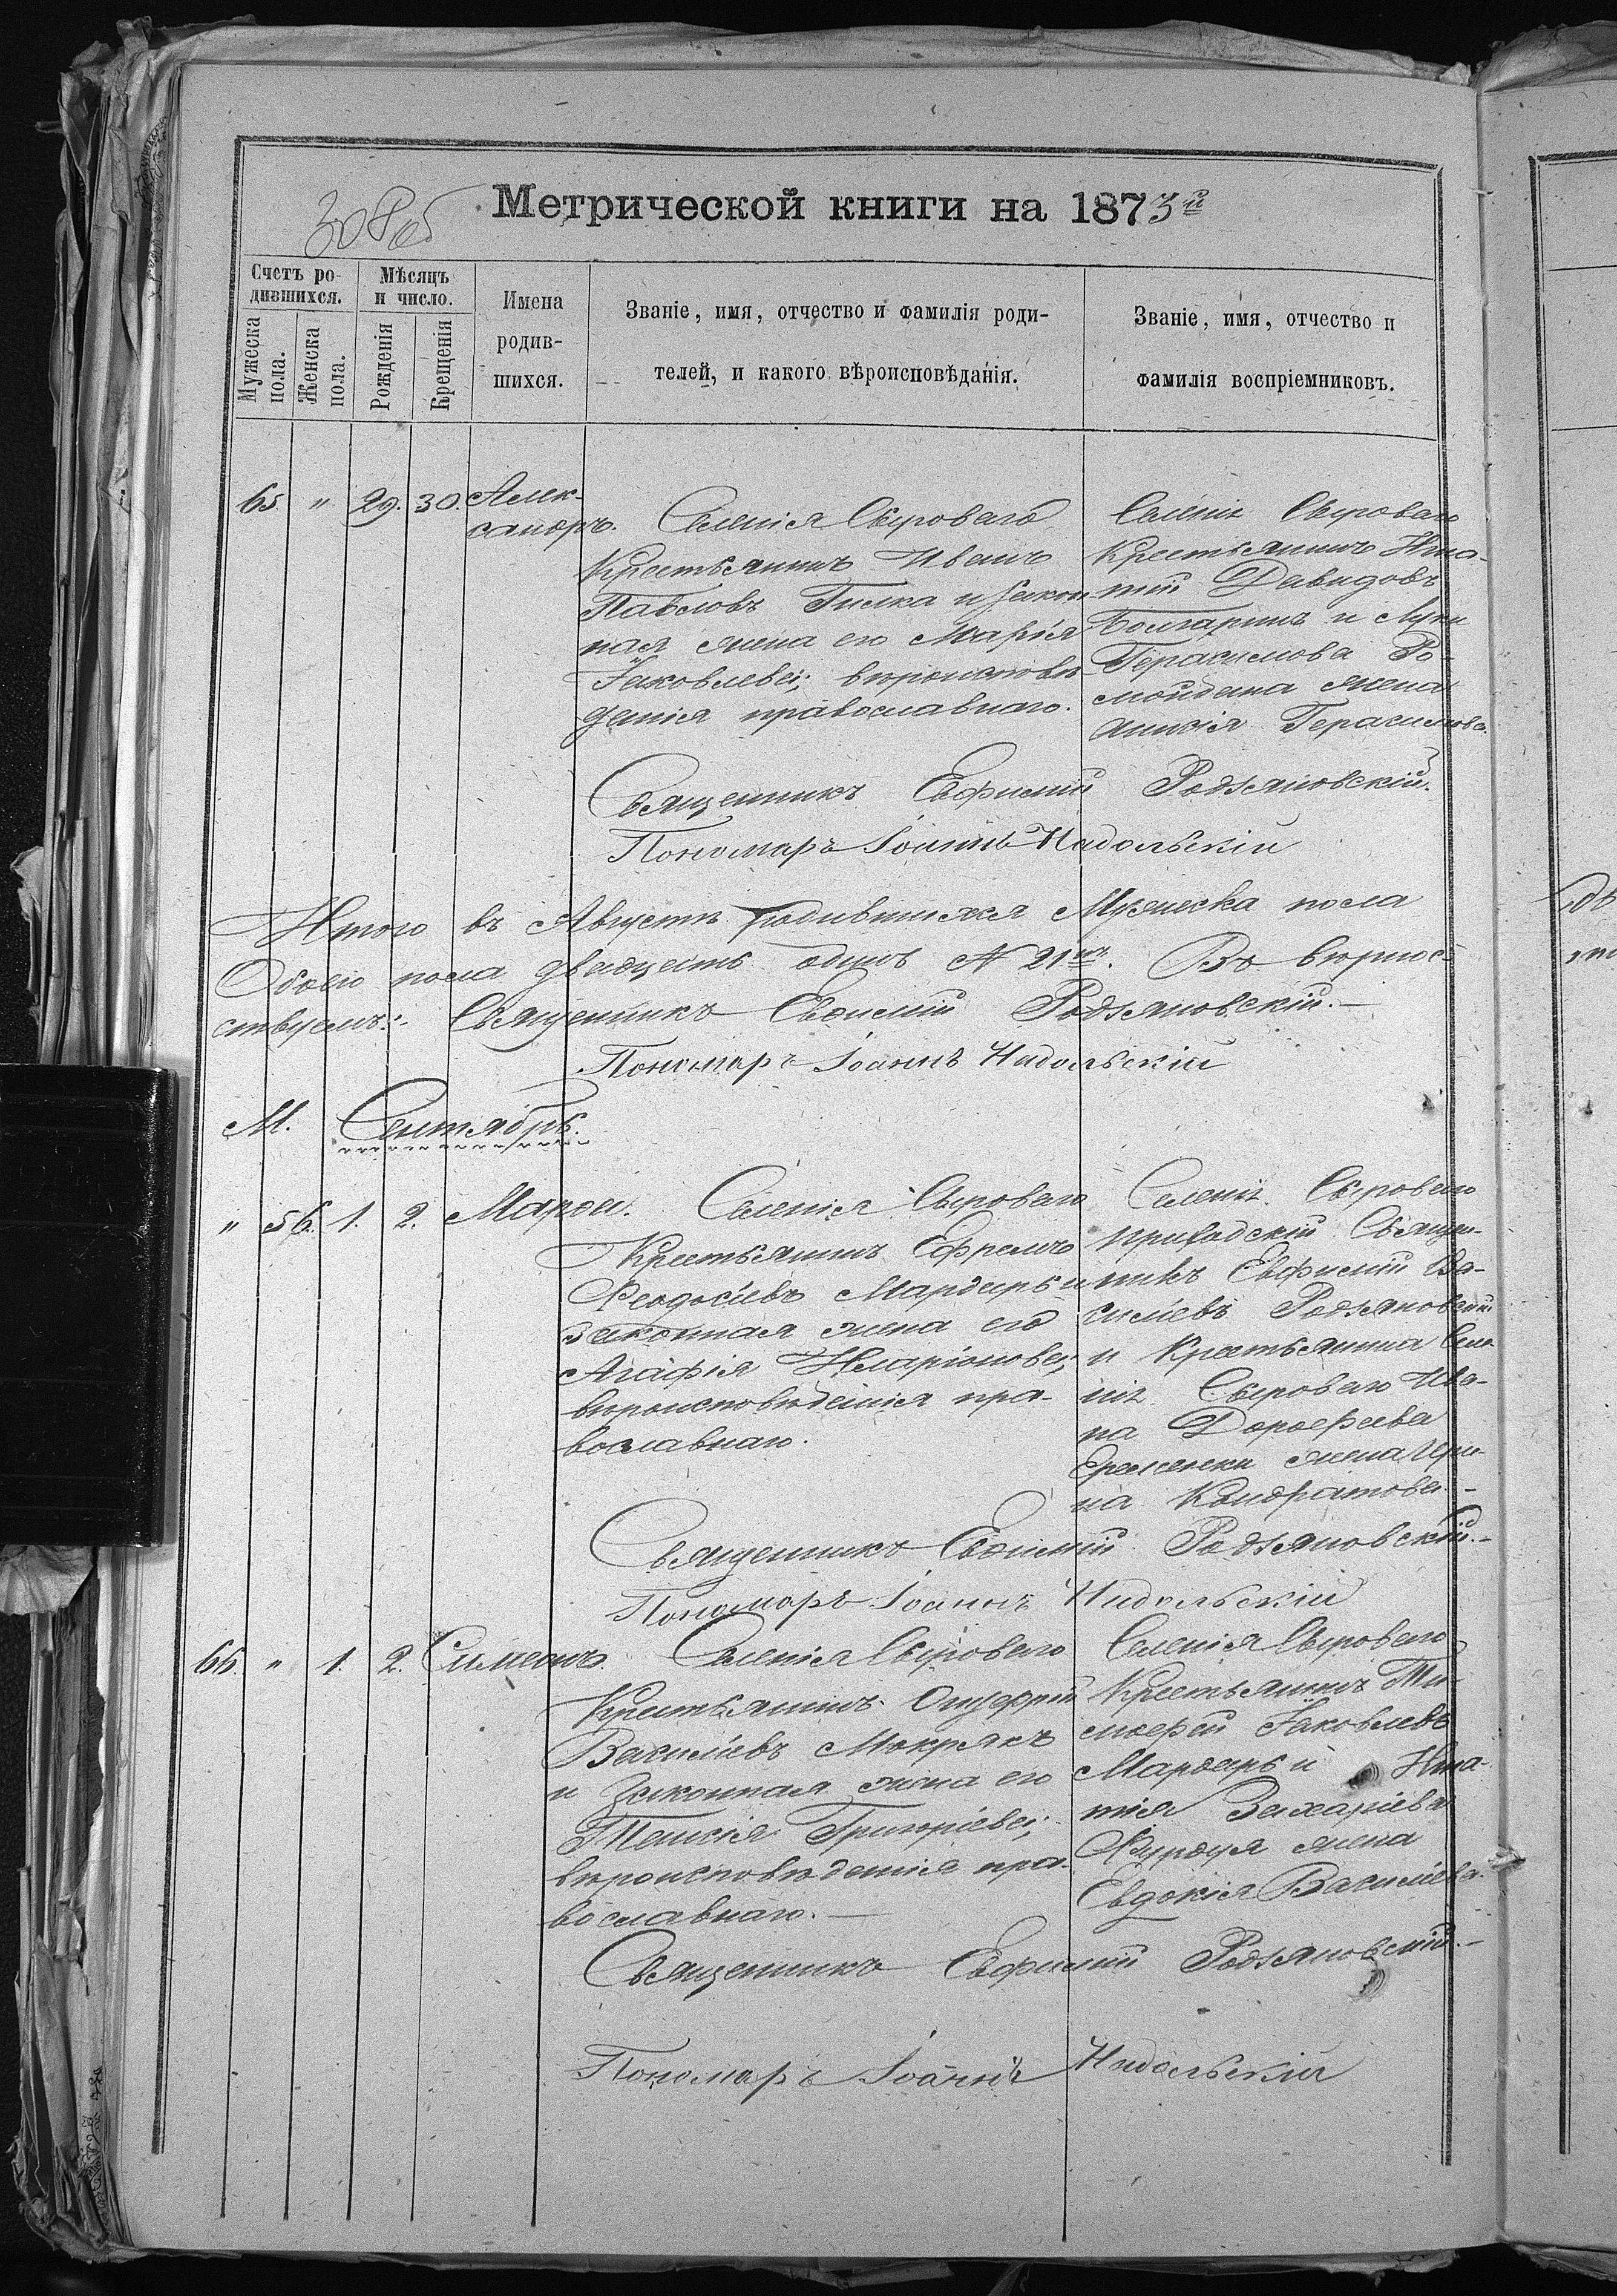 308об
Метрической книги на 1873й
Счетъ ро-
дившихся.
Мужеска
пола.
Женска
пола.
Мѣсяцъ
и число.
Рожденія
Крещенія
Имена
родив-
шихся.
Званіе, имя, отчество и фамилія роди-
телей, и какого вѣроисповѣданія.
Званіе, имя, отчество и
фамилія воспріемниковъ.
65 " 29. 30. Алек-
сандръ.
Селенія Сыроваго
Крестьянинъ Иванъ
Павловъ Гилка и закон-
ная жена его Марія
Іаковлева; вѣроисповѣ-
данія православнаго.
Селенія Сыроваго
Крестьянинъ Игна-
тій Давидовъ
Болгаринъ и Луки
Герасимова Ро-
мойдана жена
Анисія Герасимова.
Священникъ Евфимій Родзяновскій.
Пономарь Іоаннъ Надольскій
Итого въ Августѣ родившихся Мужеска пола
Обоего пола двадцать одинъ № 21нъ. Въ вѣрнос-
ствуемъ: Священникъ Евѳимій Родзяновскій.
Пономарь Іоаннъ Надольскій
М. Сентябрь.
" 56. 1. 2. Марѳа.
Селенія Сыроваго
Крестьянинъ Ефремъ
Ѳеодосіевъ Мардарь и
законная жена его
Агафія Иларіонова;
вѣроисповѣданія пра-
вославнаго.
Селенія Сыроваго
приходскій Священ-
никъ Евфимій Ва-
силіевъ Родзяновскій
и Крестьянина Селе-
нія Сыроваго Ива-
на Дорофеева
Еременки жена Ири-
на Кондратова
Священникъ Евѳимій Родзяновскій.
Пономарь Іоаннъ Надольскій
66. " 1. 2. Симеонъ.
Селенія Сыроваго
Крестьянинъ Онуфрій
Василіевъ Мокрякъ
и Законная жена его
Таисія Григоріева;
вѣроисповѣданія пра-
вославнаго.
Селенія Сыроваго
Крестьянинъ Ти-
моѳей Іаковлевъ
Мардарь и Игна-
тія Захаріева
жена
Евдокія Василіева.
Священникъ Евфимій Родзяновскій.
Пономарь Іоаннъ Надольскій